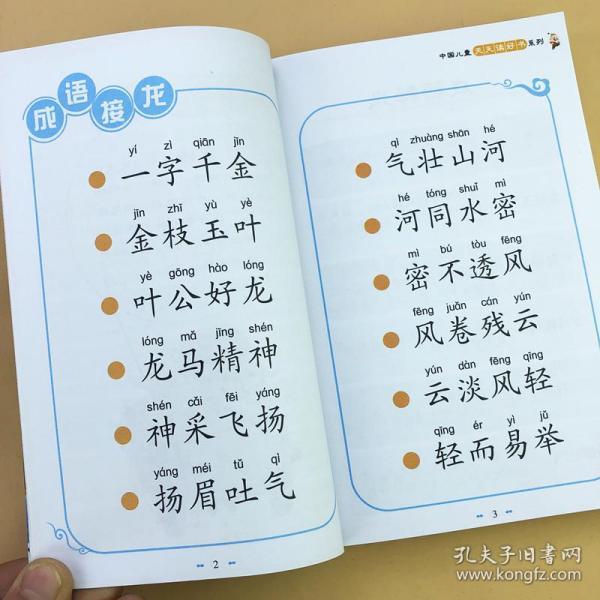 成语接龙
yí zì qiān jīn
一字千金
jīn zhī yù yè
金枝玉叶
yè gōng hào lóng
叶公好龙
lóng mǎ jīng shén
龙马精神
shén cǎi fēi yáng
神采飞扬
yáng méi tǔ qì
扬眉吐气
2
中国儿童天天读好书系列
qì zhuàng shān hé
气壮山河
hé tóng shuǐ mì
河同水密
mì bú tòu fēng
密不透风
fēng juǎn cán yún
风卷残云
yún dàn fēng qīng
云淡风轻
qīng ér yì jǔ
轻而易举
3
孔夫子旧书网
www.kongfz.com